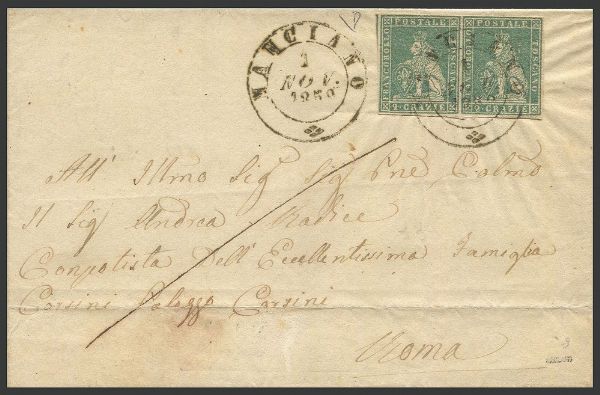 MANCIANO
1
NOV.
FRANCOBOLLO POSTALE TOSCANO
2 CRAZIE
FRANCOBOLLO POSTALE TOSCANO
2 CRAZIE
All' Illmo Sig Sig Pne Colmo
Il Sig Andrea Radice
Conpotista Dell' Eccellentissima Famiglia
Corsini Palazzo Corsini
Roma